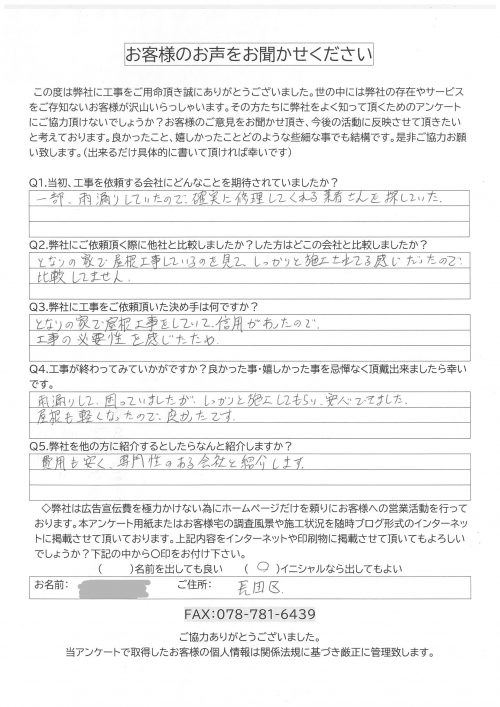 お客様のお声をお聞かせください
この度は弊社に工事をご用命頂き誠にありがとうございました。世の中には弊社の存在やサービス
をご存知ないお客様が沢山いらっしゃいます。その方たちに弊社をよく知って頂くためのアンケート
にご協力頂けないでしょうか？お客様のご意見をお聞かせ頂き、今後の活動に反映させて頂きたい
と考えております。良かったこと、嬉しかったことどのような些細な事でも結構です。是非ご協力お願
い致します。（出来るだけ具体的に書いて頂ければ幸いです）
Q1.当初、工事を依頼する会社にどんなことを期待されていましたか？
一部、雨漏りしていたので、確実に修理してくれる業者さんを探していた。
Q2.弊社にご依頼頂く際に他社と比較しましたか？した方はどこの会社と比較しましたか？
となりの家で屋根工事しているのを見て、しっかりと施工されてる感じだったので
比較してません。
Q3.弊社に工事をご依頼頂いた決め手は何ですか？
となりの家で屋根工事をしていて、信用があったので。
工事の必要性を感じたため
Q4.工事が終わってみていかがですか？良かった事・嬉しかった事を忌憚なく頂戴出来ましたら幸い
です。
雨漏りして、困っていましたが、しっかりと施工してもらい、安心できました。
屋根も軽くなったので、良かったです。
Q5.弊社を他の方に紹介するとしたらなんと紹介しますか？
費用も安く、専門性のある会社と紹介します。
◇弊社は広告宣伝費を極力かけない為にホームページだけを頼りにお客様への営業活動を行って
おります。本アンケート用紙またはお客様宅の調査風景や施工状況を随時ブログ形式のインターネッ
トに掲載させて頂いております。上記内容をインターネットや印刷物に掲載させて頂いてもよろしい
でしょうか？下記の中から〇印をお付け下さい。
（　　）名前を出しても良い　（ 〇 ）イニシャルなら出してもよい
お名前：　ご住所：　長田区
FAX：078-781-6439
ご協力ありがとうございました。
当アンケートで取得したお客様の個人情報は関係法規に基づき厳正に管理致します。